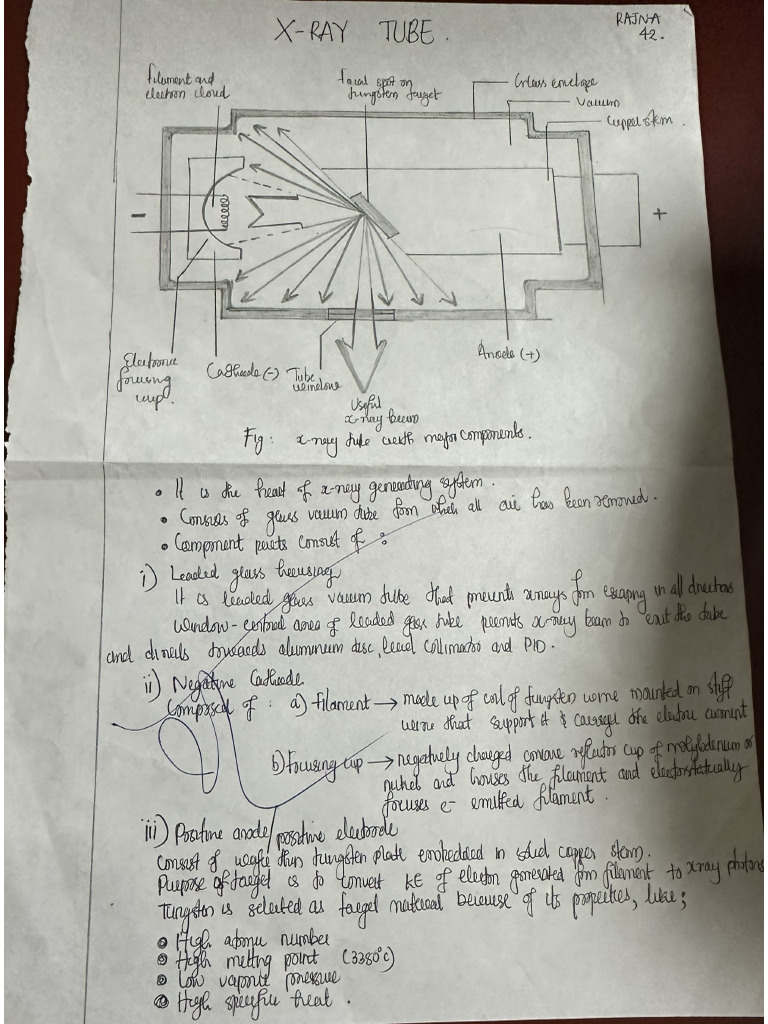 X-RAY TUBE.
RAJNA
42.
filament and
electron cloud
focal spot on
tungsten target
Glass envelope
Vacuum
Copper stem.
-
+
Electronic
focusing
cup.
Cathode (-)
Tube
window
Useful
x-ray beam
Anode (+)
Fig: x-ray tube with major components.
• It is the heart of x-ray generating system.
• Consists of glass vacuum tube from which all air has been removed.
• Component parts consist of :
i) Leaded glass housing
It is leaded glass vacuum tube that prevents xrays from escaping in all directions
window - central area of leaded glass tube permits x-ray beam to exit the tube
and directs towards aluminum disc, lead collimator and PID.
ii) Negative Cathode
Composed of : a) filament → made up of coil of tungsten wire mounted on stiff
wire that support it & carries the electric current
b) Focusing cup → negatively charged concave reflector cup of molybdenum or
nickel and houses the filament and electrostatically
focuses e- emitted filament.
iii) Positive anode/positive electrode
Consist of wafer thin tungsten plate embedded in solid copper stem.
Purpose of target is to convert KE of electron generated from filament to xray photons
Tungsten is selected as target material because of its properties, like;
• High atomic number
• High melting point (3380°C)
• Low vapour pressure
• High specific heat.